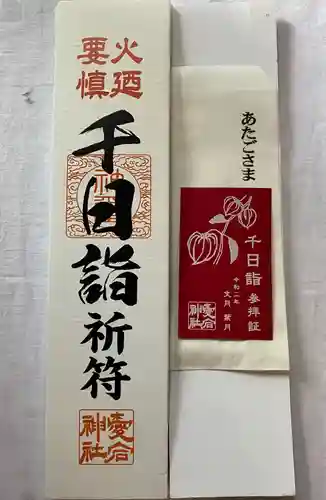 火廼
要慎
千日詣祈符
愛宕
神社
あたごさま
千日詣 参拝証
令和二年
文月 葉月
愛宕
神社